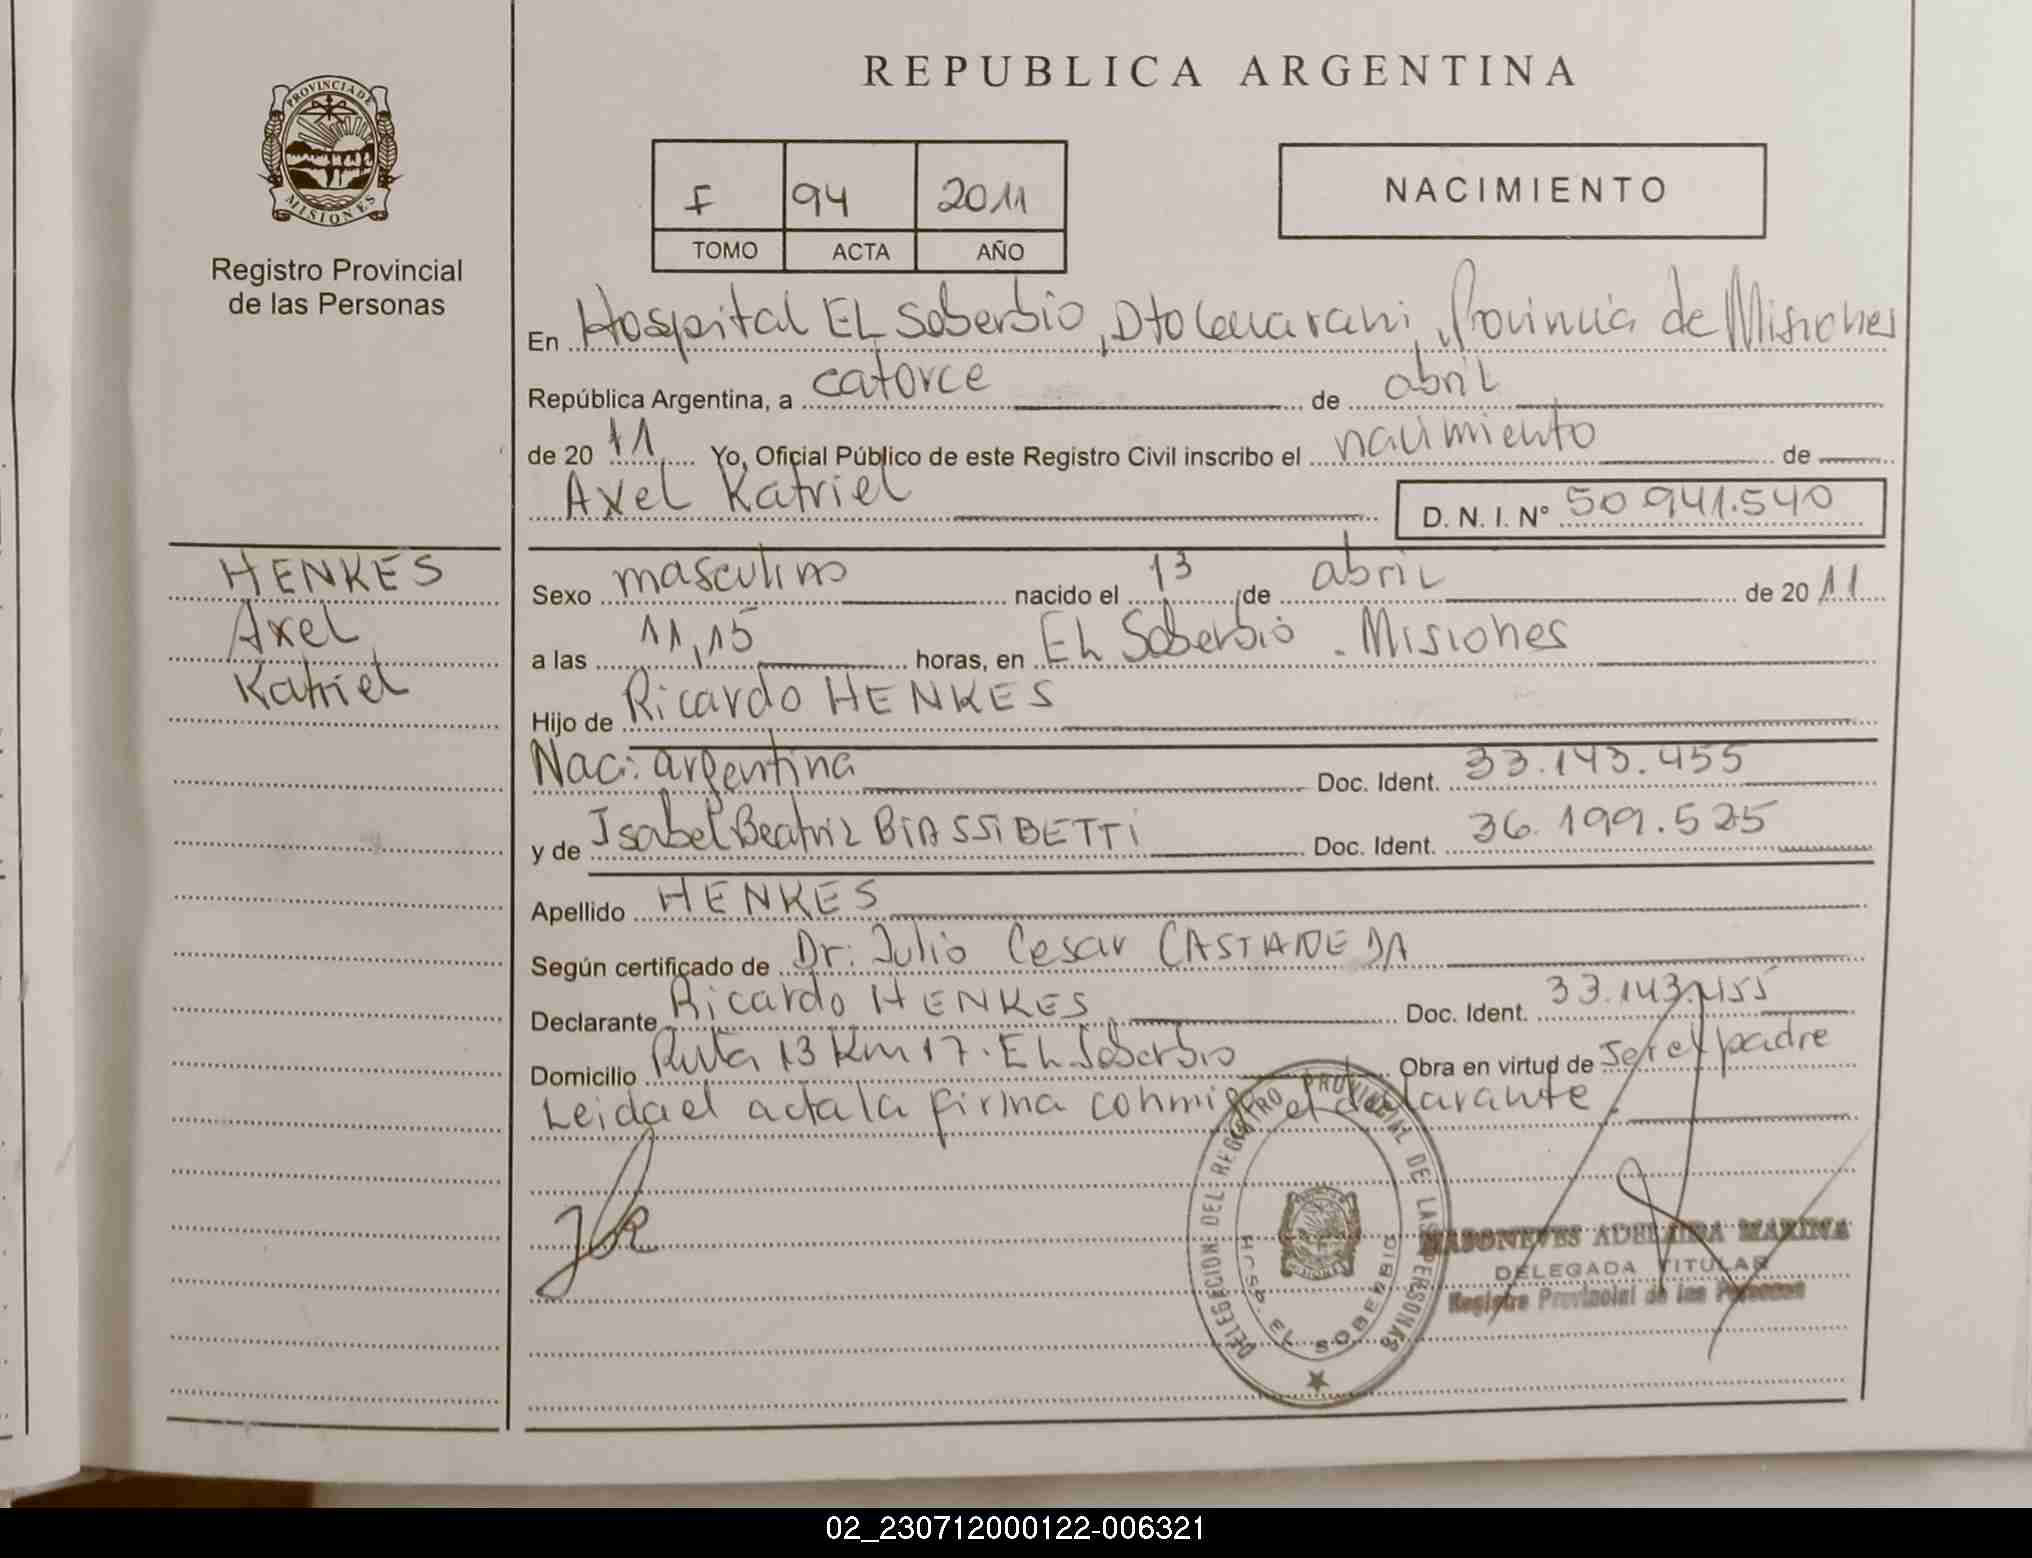 REPUBLICA ARGENTINA
PROVINCIA DE
MISIONES
Registro Provincial
de las Personas
I 94 2011
TOMO ACTA AÑO
NACIMIENTO
En Hospital EL Soberbio, Dto Guarani, Provincia de Misiones
República Argentina, a catorce de abril
de 20 11 Yo, Oficial Público de este Registro Civil inscribo el nacimiento de
Axel Katriel D. N. I. N° 50.941.540
HENKES
Axel
Katriel
Sexo masculino nacido el 13 de abril de 20 11
a las 11,15 horas, en EL Soberbio - Misiones
Hijo de Ricardo HENKES
Nac: argentina Doc. Ident. 33.143.455
y de Isabel Beatriz BIASSIBETTI Doc. Ident. 36.199.525
Apellido HENKES
Según certificado de Dr: Julio Cesar CASTANEDA
Declarante Ricardo HENKES Doc. Ident. 33.143.455
Domicilio Ruta 13 Km 17 - EL Soberbio Obra en virtud de ser el padre
Leida el acta la firma conmigo el declarante.
DELEGACION DEL REGISTRO PROVINCIAL DE LAS PERSONAS
HOSP. EL SOBERBIO
ADELAIDA MARINA
DELEGADA TITULAR
Registro Provincial de las Personas
02_230712000122-006321